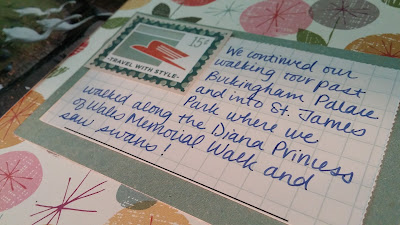 15¢
TRAVEL WITH STYLE
We continued our
walking tour past
Buckingham Palace
and into St. James
Park where we
walked along the Diana Princess
of Wales Memorial Walk and
saw swans!